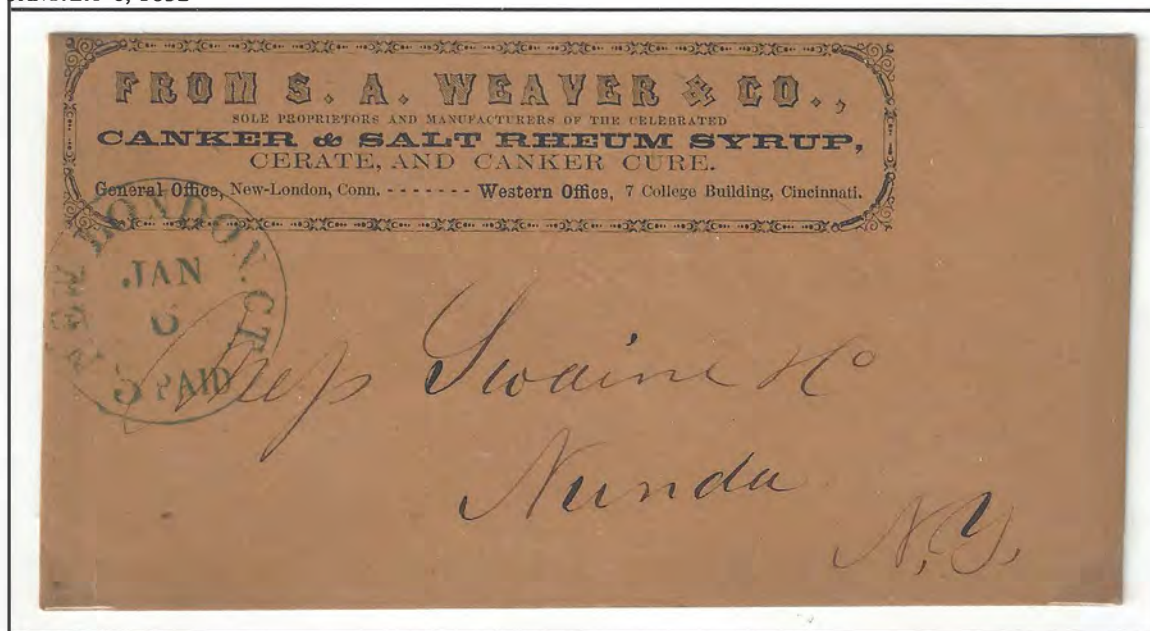 FROM S. A. WEAVER & CO.,
SOLE PROPRIETORS AND MANUFACTURERS OF THE CELEBRATED
CANKER & SALT RHEUM SYRUP,
CERATE, AND CANKER CURE.
General Office, New-London, Conn. - - - - - - - Western Office, 7 College Building, Cincinnati.
NEW LONDON. CT.
JAN
6
3 PAID
Swaine
Nunda
N.Y.